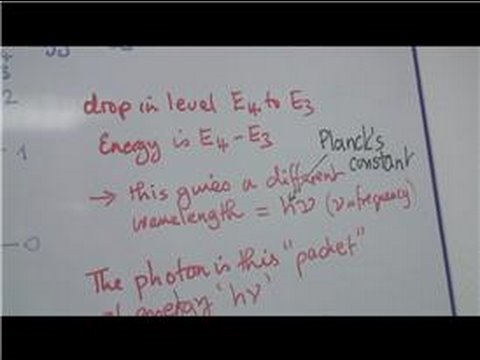 2
1
0
drop in level E4 to E3
Energy is E4 - E3
Planck's
constant
→ this gives a different
wavelength = hν (ν = frequency)
The photon is this "packet"
of energy 'hν'